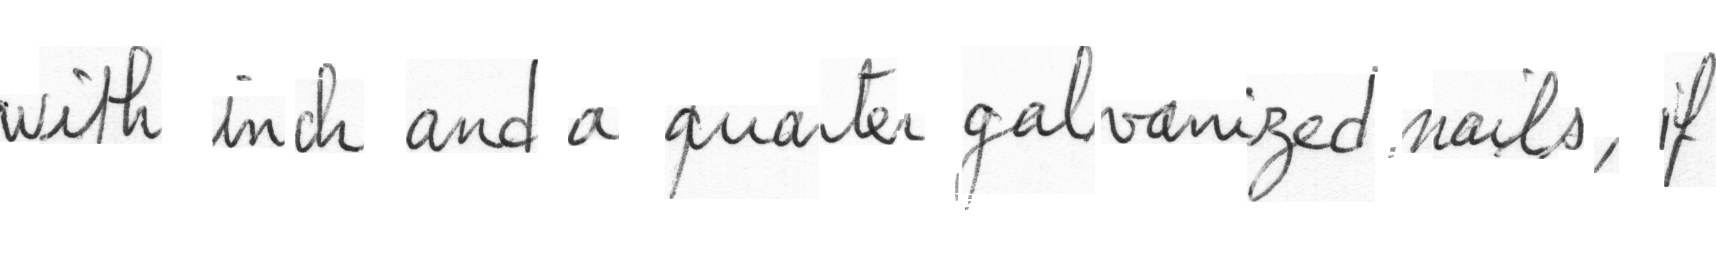 with inch and a quarter galvanized nails, if